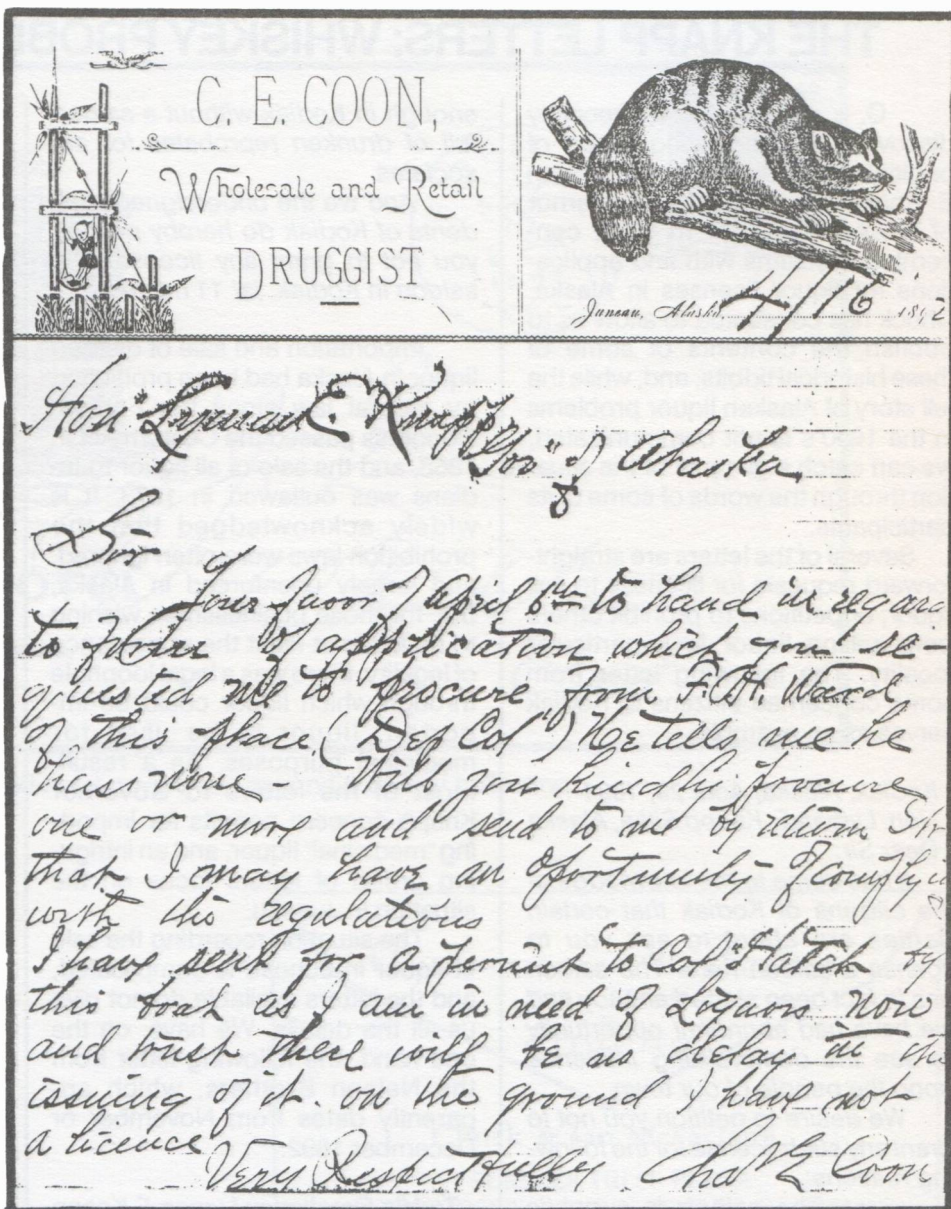 C. E. COON
Wholesale and Retail
DRUGGIST.
Juneau, Alaska, 4/16 1892
Hon" Lyman E. Knapp
Gov" of Alaska
Sir
Your favor April 6th to hand in regard
to form of application which you re-
quested me to procure from F. A. Ward
of this place (Dep Col") He tells me he
has none. Will you kindly procure
one or more and send to me by return Str
that I may have an Oportunity of complyin
with the regulations
I have sent for a permit to Col" Hatch by
this boat as I am in need of Liquors now
and trust there will be no delay in the
issuing of it on the ground I have not
a licence
Very Respectfully Chas E Coon